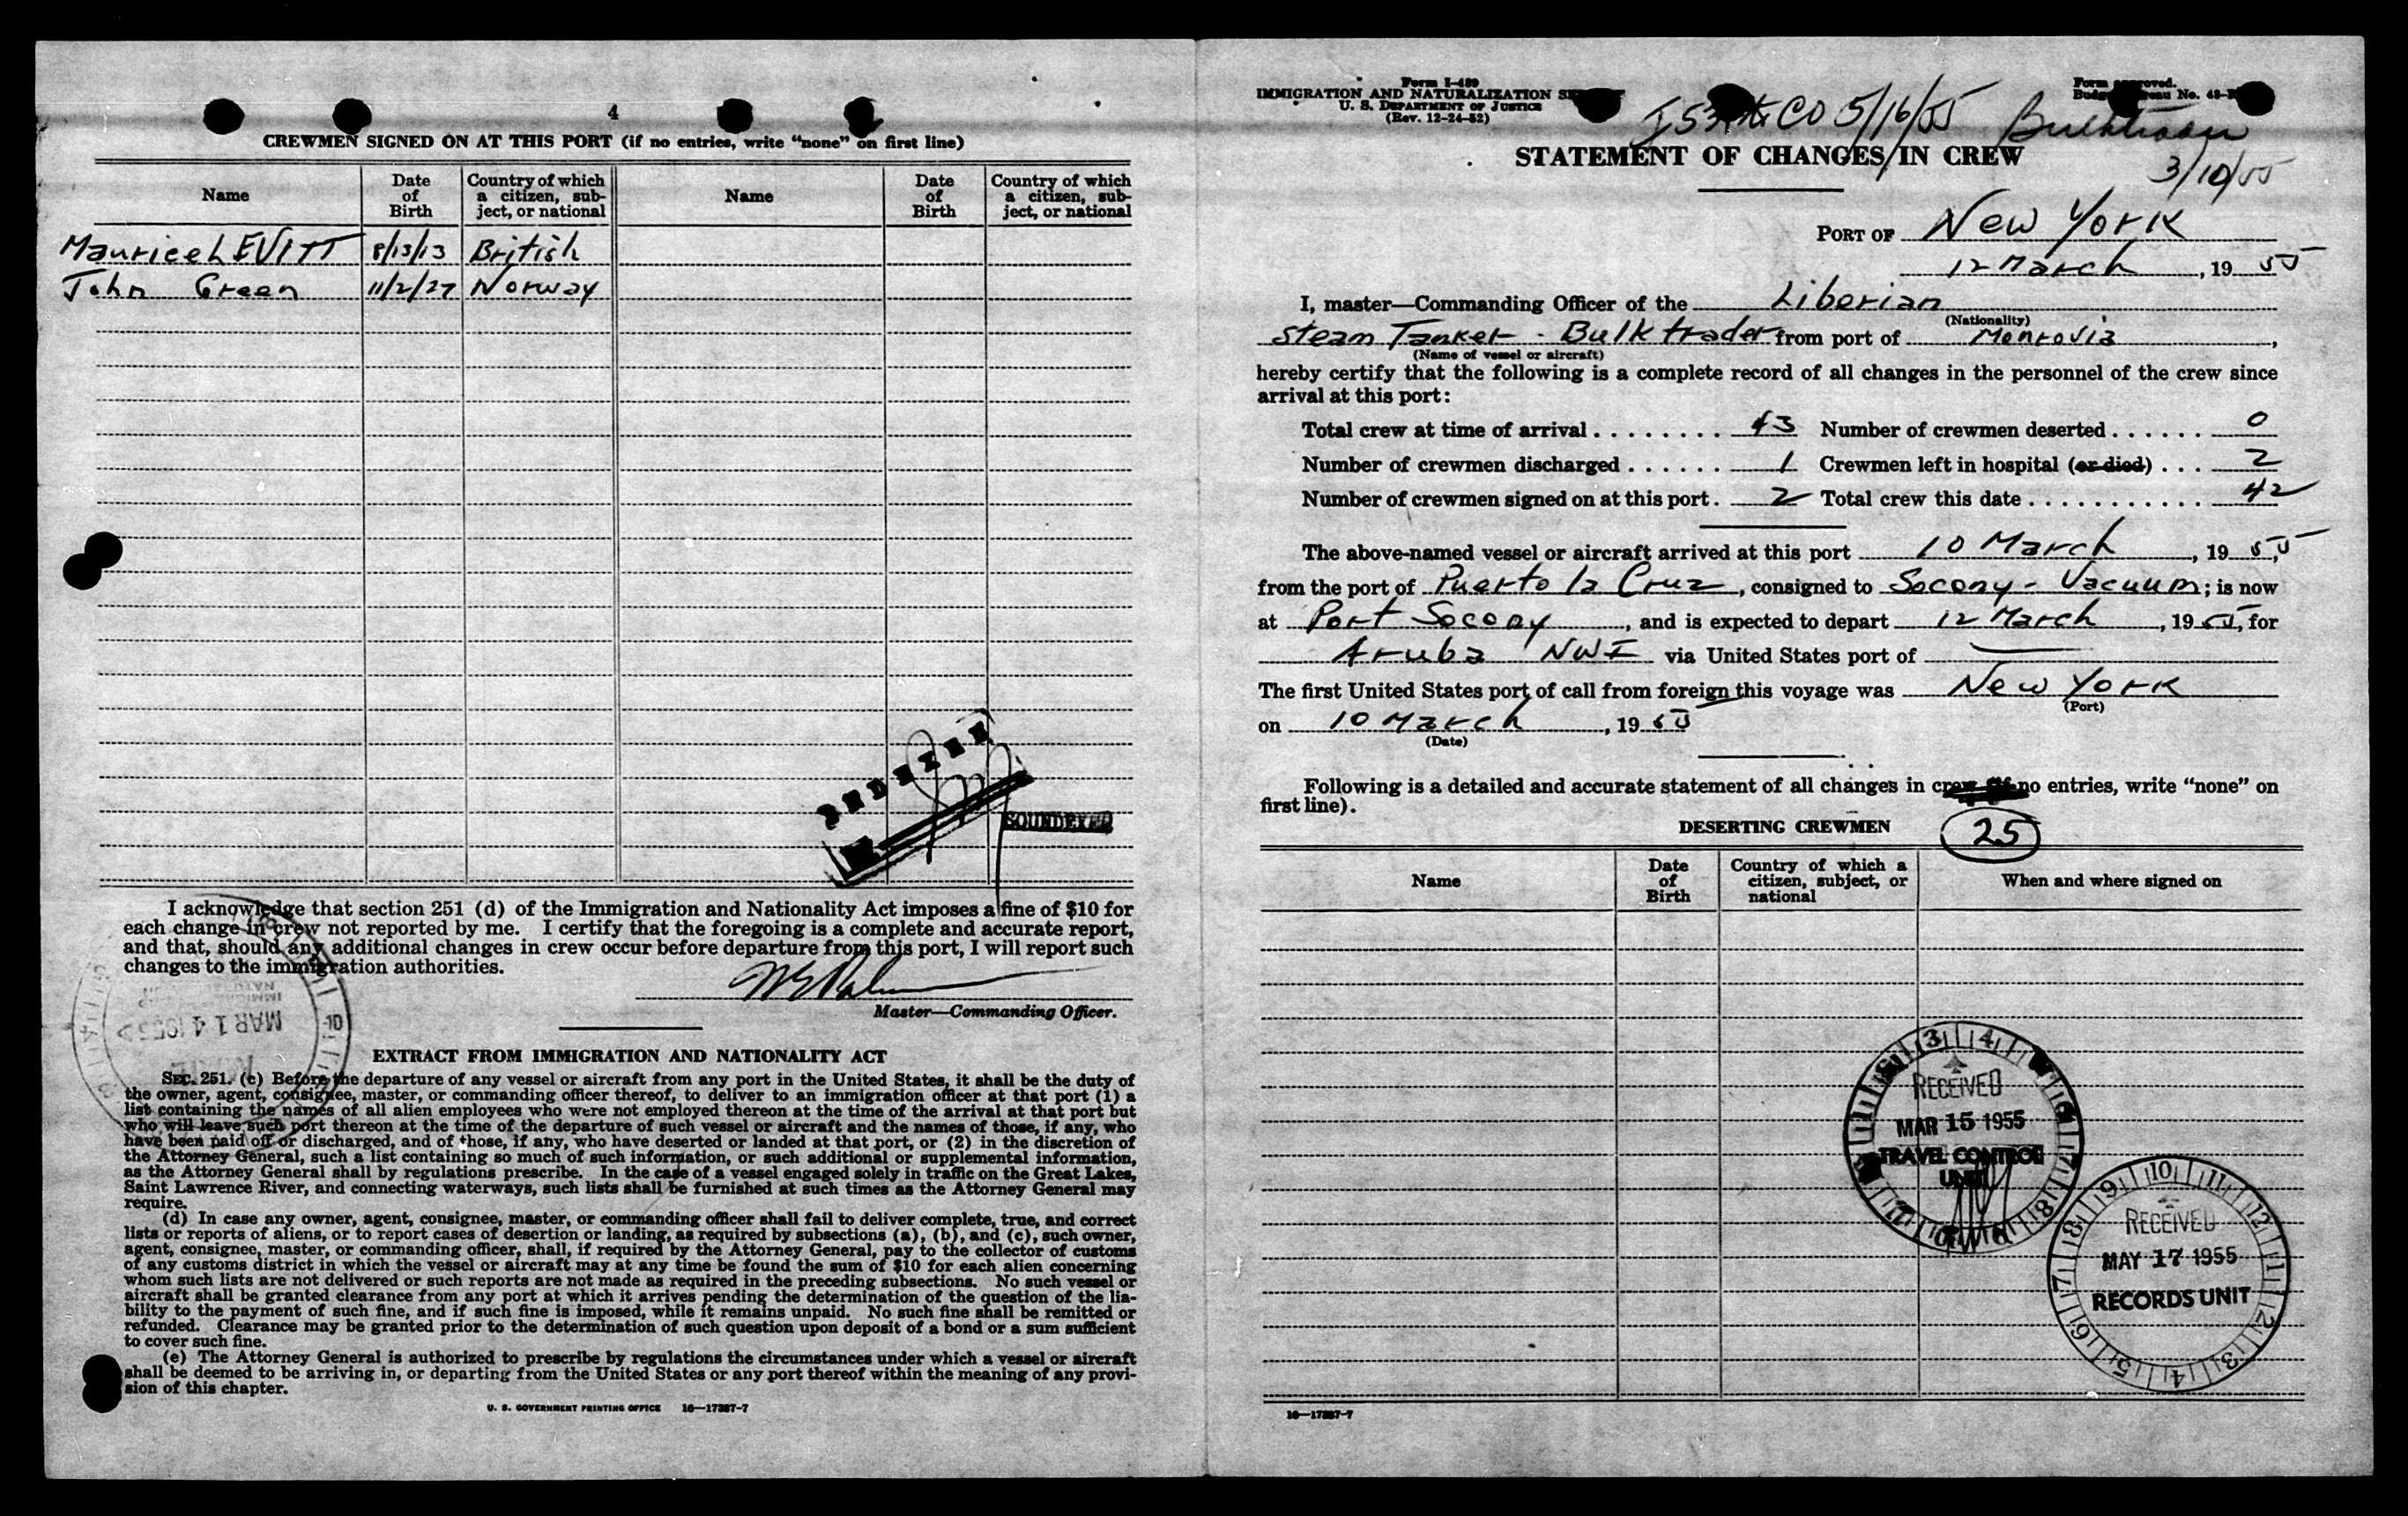 4
CREWMEN SIGNED ON AT THIS PORT (if no entries, write “none” on first line)
Name
Date of Birth
Country of which a citizen, subject, or national
Name
Date of Birth
Country of which a citizen, sub-ject, or national
Maurice LEVITT 8/13/13 British
John Green 11/2/27 Norway
INDEXED
SOUNDEXED
I acknowledge that section 251 (d) of the Immigration and Nationality Act imposes a fine of $10 for
each change in crew not reported by me. I certify that the foregoing is a complete and accurate report,
and that, should any additional changes in crew occur before departure from this port, I will report such
changes to the immigration authorities.
Master—Commanding Officer.
MAR 14 1955
EXTRACT FROM IMMIGRATION AND NATIONALITY ACT
SEC. 251. (c) Before the departure of any vessel or aircraft from any port in the United States, it shall be the duty of
the owner, agent, consignee, master, or commanding officer thereof, to deliver to an immigration officer at that port (1) a
list containing the names of all alien employees who were not employed thereon at the time of the arrival at that port but
who will leave such port thereon at the time of the departure of such vessel or aircraft and the names of those, if any, who
have been paid off or discharged, and of those, if any, who have deserted or landed at that port, or (2) in the discretion of
the Attorney General, such a list containing so much of such information, or such additional or supplemental information,
as the Attorney General shall by regulations prescribe. In the case of a vessel engaged solely in traffic on the Great Lakes,
Saint Lawrence River, and connecting waterways, such lists shall be furnished at such times as the Attorney General may
require.
(d) In case any owner, agent, consignee, master, or commanding officer shall fail to deliver complete, true, and correct
lists or reports of aliens, or to report cases of desertion or landing, as required by subsections (a), (b), and (c), such owner,
agent, consignee, master, or commanding officer, shall, if required by the Attorney General, pay to the collector of customs
of any customs district in which the vessel or aircraft may at any time be found the sum of $10 for each alien concerning
whom such lists are not delivered or such reports are not made as required in the preceding subsections. No such vessel or
aircraft shall be granted clearance from any port at which it arrives pending the determination of the question of the lia-
bility to the payment of such fine, and if such fine is imposed, while it remains unpaid. No such fine shall be remitted or
refunded. Clearance may be granted prior to the determination of such question upon deposit of a bond or a sum sufficient
to cover such fine.
(e) The Attorney General is authorized to prescribe by regulations the circumstances under which a vessel or aircraft
shall be deemed to be arriving in, or departing from the United States or any port thereof within the meaning of any provi-
sion of this chapter.
U. S. GOVERNMENT PRINTING OFFICE 16—17387-7
Form I-489
IMMIGRATION AND NATURALIZATION
U. S. DEPARTMENT OF JUSTICE
(Rev. 12-24-52)
CO 5/16/55
Form approved.
No. 43-
Bulktrader
3/10/55
STATEMENT OF CHANGES IN CREW
PORT OF New York
12 March, 19 55
I, master—Commanding Officer of the Liberian
(Nationality)
Steam Tanker - Bulktrader from port of Monrovia,
(Name of vessel or aircraft)
hereby certify that the following is a complete record of all changes in the personnel of the crew since
arrival at this port:
Total crew at time of arrival ........ 43 Number of crewmen deserted ...... 0
Number of crewmen discharged ...... 1 Crewmen left in hospital (or died) ... 2
Number of crewmen signed on at this port. 2 Total crew this date ........... 42
The above-named vessel or aircraft arrived at this port 10 March, 19 55
from the port of Puerto la Cruz, consigned to Socony-Vacuum; is now
at Port Socony, and is expected to depart 12 March, 19 55, for
Aruba NWI via United States port of —
The first United States port of call from foreign this voyage was New York
(Port)
on 10 March, 19 55
(Date)
Following is a detailed and accurate statement of all changes in crew (if no entries, write “none” on
first line).
DESERTING CREWMEN
25
Name
Date of Birth
Country of which a citizen, subject, or national
When and where signed on
RECEIVED
MAR 15 1955
TRAVEL CONTROL
UNIT
RECEIVED
MAY 17 1955
RECORDS UNIT
16—17387-7